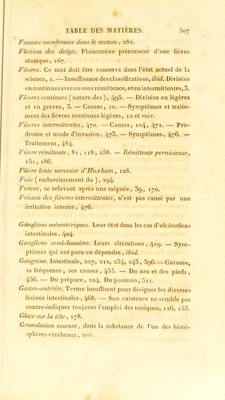 TABLE DES MATIÈRES. 507
Fausses membranes dans le rectum, 282.
Flexion des doigts. Phénomène précurseur d'une fièvre
ataxique, 167.
Fièvres. Ce mot doit être conservé dans l'état actuel de la
science, 1. — Insuffisance des classifications, ibid. Divisées
en continues avec ou sans rémittence, et en intermittentes, 3.
Fièvres continues (nature des), 495. — Divisées en légères
et en graves, 3. — Causes, 10. — Symptômes et traite-
ment des fièvres continues légères, 12 et suiv.
Fièvres intermittentes, 470. — Causes, 104, 471. — Pro-
drome et mode d'invasion, 473. — Symptômes, 476. —
Traitement, 484.
Fièvre rémittente, 81, 118, 258. — Rémittente pernicieuse,
151, 186.
Fièvre lente nerveuse d'Huxham, 128.
Foie (endurcissement du), 294.
Forces, se relevant après une saignée, 39, 170.
Frisson des fièvres intermittentes, n'est pas causé par une
irritation interne, 476.
Ganglions mésentériques. Leur état dans les cas d'ulcérations
intestinales, 404.
Ganglions semi-lunaires. Leurs altérations, 419. — Sym-
ptômes qui ont paru en dépendre, ibid.
Gangrène. Intestinale, 207, 212, 234, 243, 396.—Cutanée,
sa fréquence, ses causes, 455. — Du nez et des pieds,
456. — Du prépuce, 224. Du poumon, 311.
Gastro-entérite. Terme insuffisant pour désigner les diverses
lésions intestinales, 468. — Son existence ne semble pas
contre-indiquer toujours l'emploi des toniques, 116, 153.
Glace sur la tête, 178.
Granulation osseuse, dans la substance de l'un des hémi-
sphères cérébraux, 206.